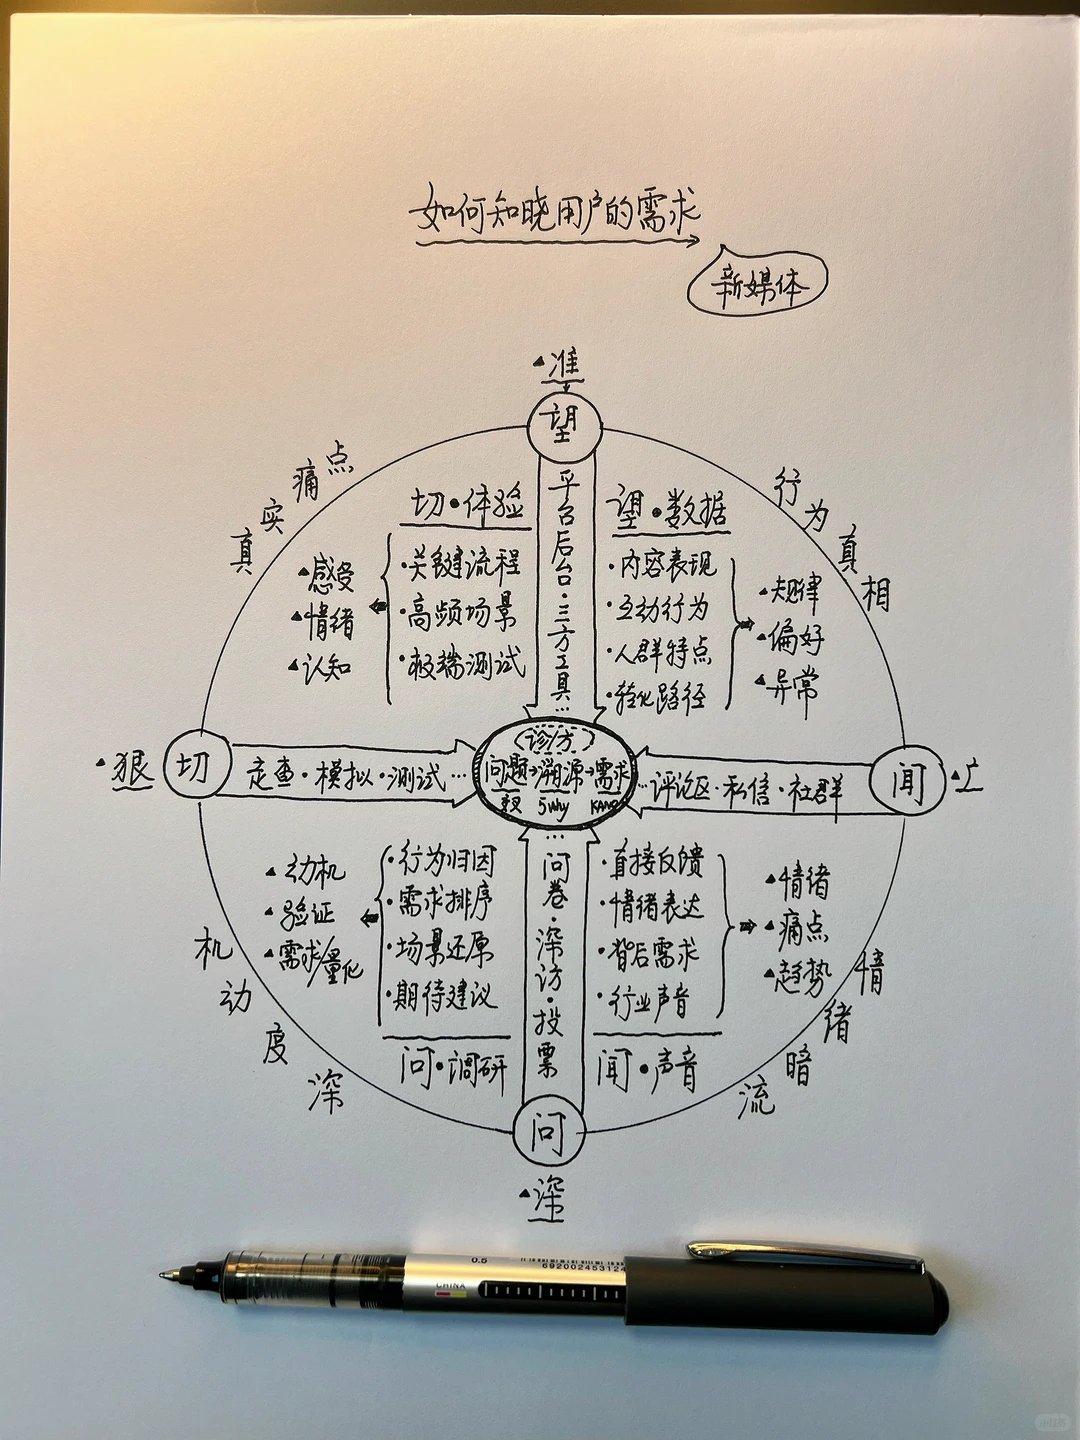 如何知晓用户的需求
新媒体
▲准
望
平台后台·三方工具…
真实痛点
行为真相
切·体验
·关键流程
·高频场景
·极端测试
▲感受
▲情绪
▲认知
望·数据
·内容表现
·互动行为
·人群特点
·转化路径
▲规律
▲偏好
▲异常
▲狠
切
走查·模拟·测试…
诊/方
问题→溯源→需求
5why KANO
…评论区·私信·社群
闻
▲广
▲动机
▲验证
▲需求/量化
·行为归因
·需求排序
·场景还原
·期待建议
问·调研
…问卷·深访·投票
·直接反馈
·情绪表达
·背后需求
·行业声音
闻·声音
▲情绪
▲痛点
▲趋势
机动度深
情绪暗流
问
▲深
0.5
692002453124
CHINA
小红书